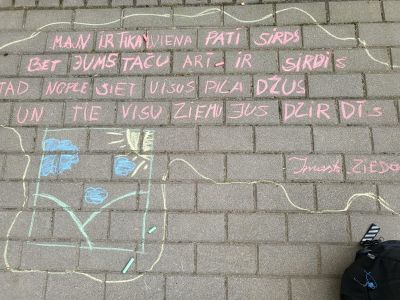 MAN IR TIKAI VIENA PATI SIRDS
BET JUMS TAČU ARĪ IR SIRDIS
TAD NOPLĒSIET VISUS PLAKĀTUS
UN TIE VISU ZIEMU JUS DZIRDĪS
Imants ZIEDO